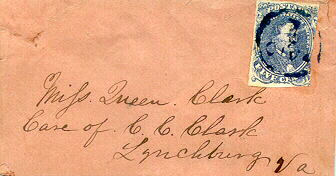 POSTAGE
Miss. Queen. Clark
Care of. C. C. Clark
Lynchburg Va